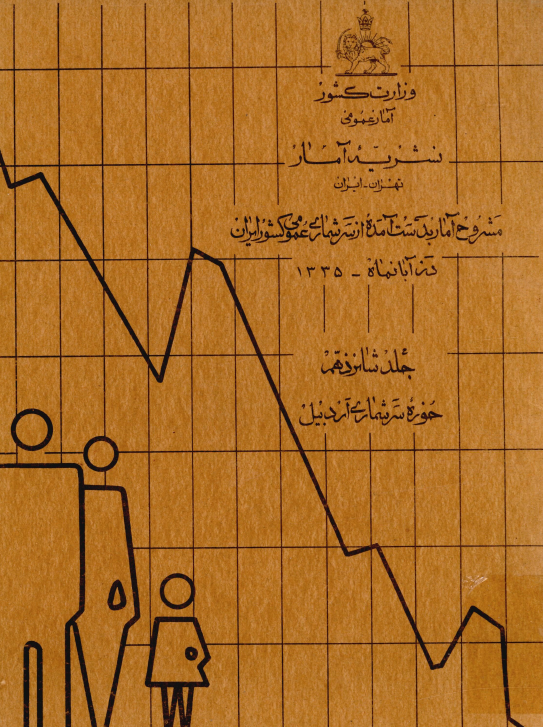 وزارت کشور
آمار عمومی
نشریه آمار
تهران - ایران
مشروح آمار بدست آمده از سرشماری عمومی کشور ایران
در آبانماه - ۱۳۳۵
جلد شانزدهم
حوزه سرشماری اردبیل